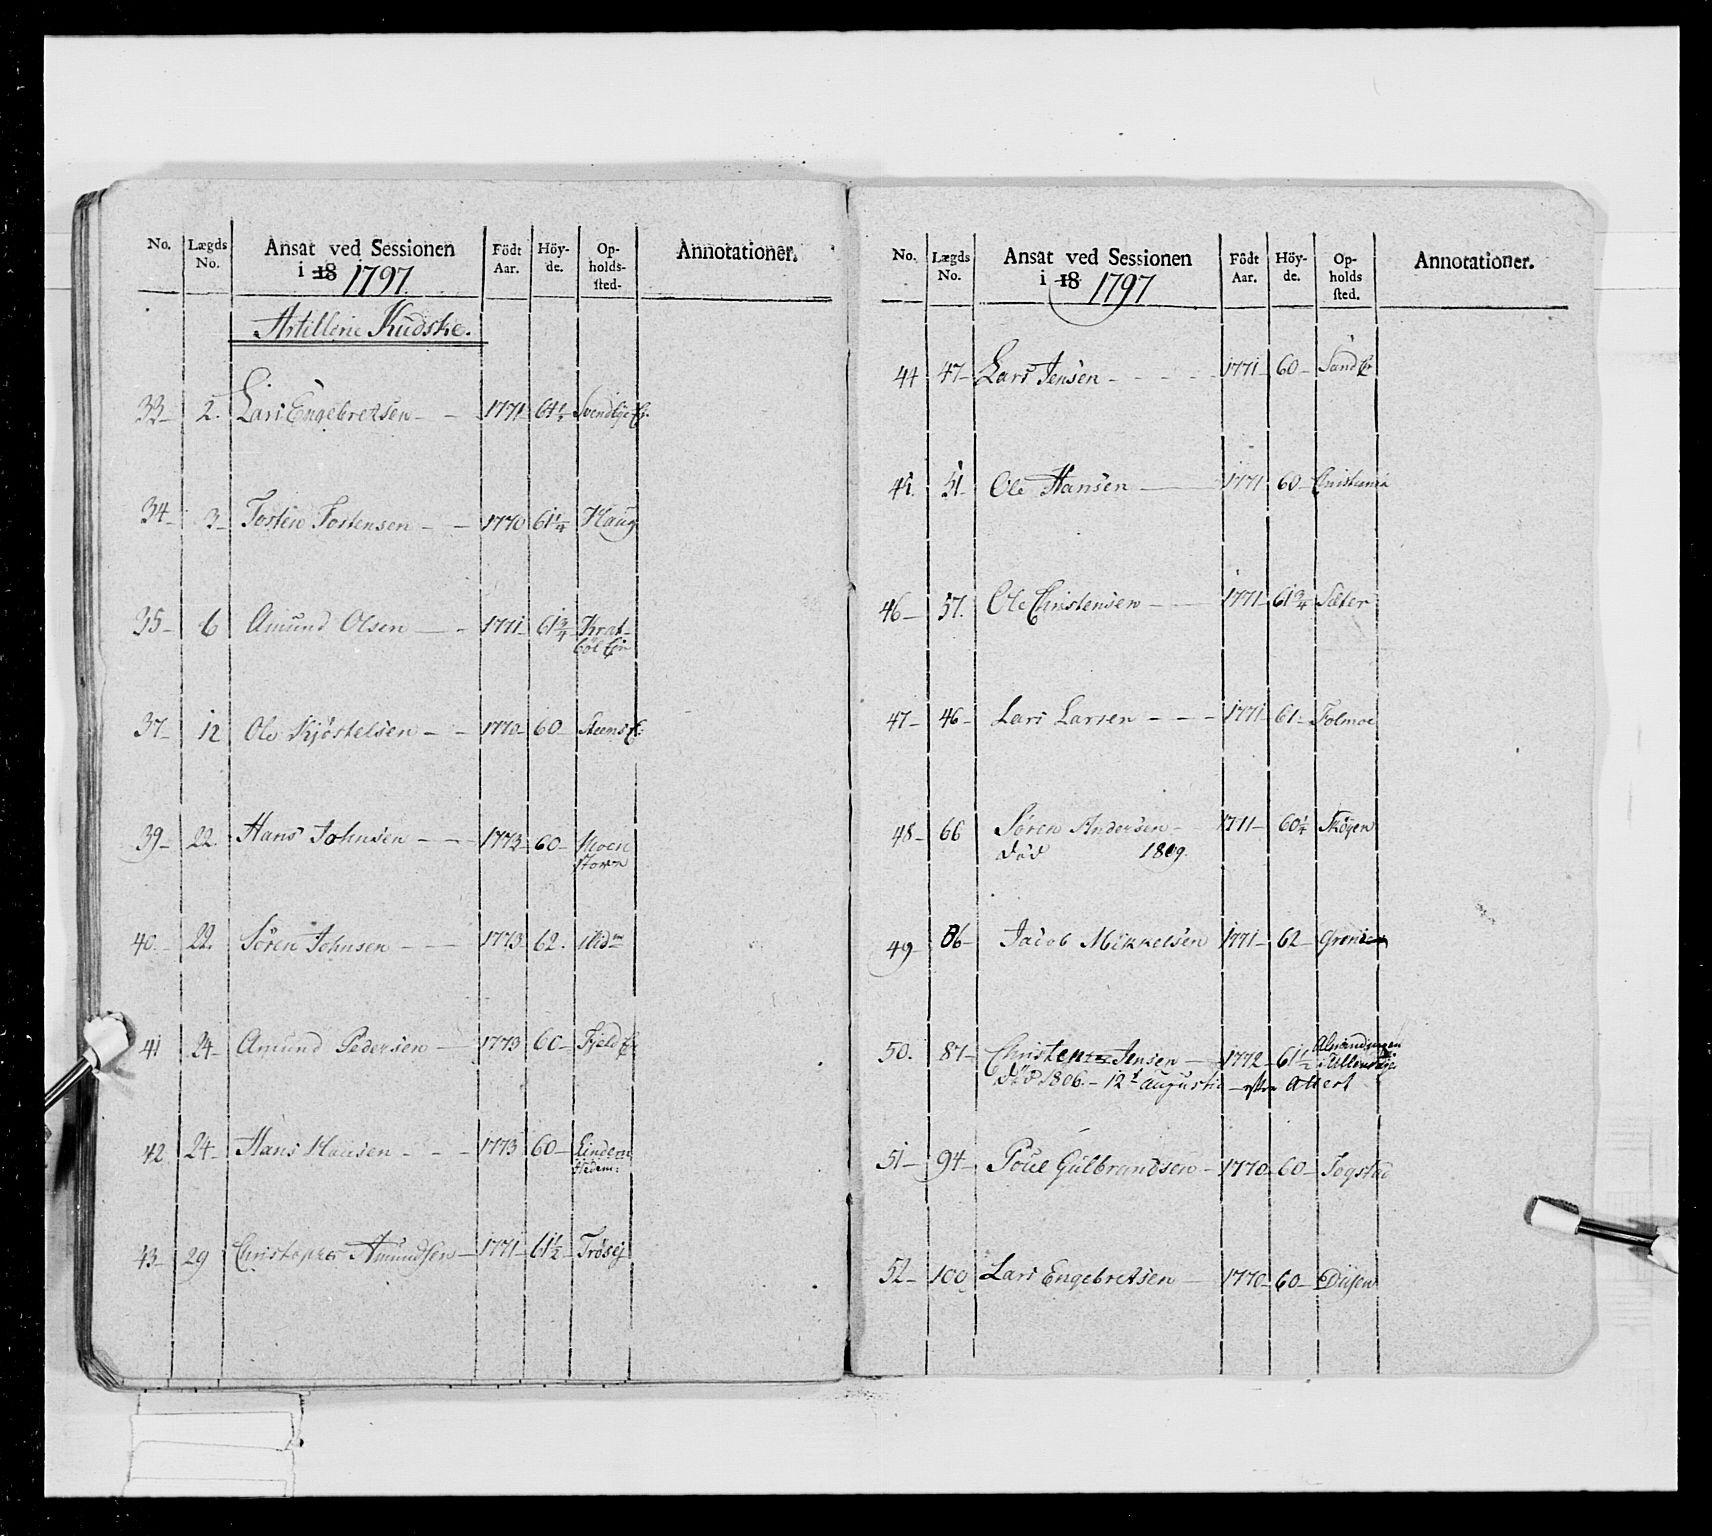 No. Lægds No. Ansat ved Sessionen i 18 1797. Födt Aar. Höy-de. Op-holds-sted. Annotationer.
Artillerie Kudske.
33 2. Lars Engebretsen 1771 64¼
34 3 Tosten Tostensen 1770 61¼ Haug
35 6 Amund Olsen 1771 61¾
37 12 Ole Kjöstelsen 1770 60
39 22. Hans Johnsen 1773 60
40. 22. Sören Johnsen 1773 62.
41 24 Amund Pedersen 1773 60
42 24 Hans Hansen 1773 60
43 29 Christopher Amundsen 1771 61½ Trösej
No. Lægds No. Ansat ved Sessionen i 18 1797 Födt Aar. Höy-de. Op-holds sted. Annotationer.
44 47 Lars Jensen 1771 60
45. 51 Ole Hansen 1771 60 Christiania
46 57. Ole Christensen 1771 61¾ Sæter
47 46 Lars Larsen 1771 61 Tolmoe
48 66 Sören Andersen 1771 60¼ Skögen
död 1809.
49 86 Jacob Mikkelsen 1771 62
50. 87 Christen Jensen 1772 61½
död 1806. 12t augustii Attest
51 94 Poul Gulbrandsen 1770 60 Jogstad
52 100 Lars Engebretsen 1770 60